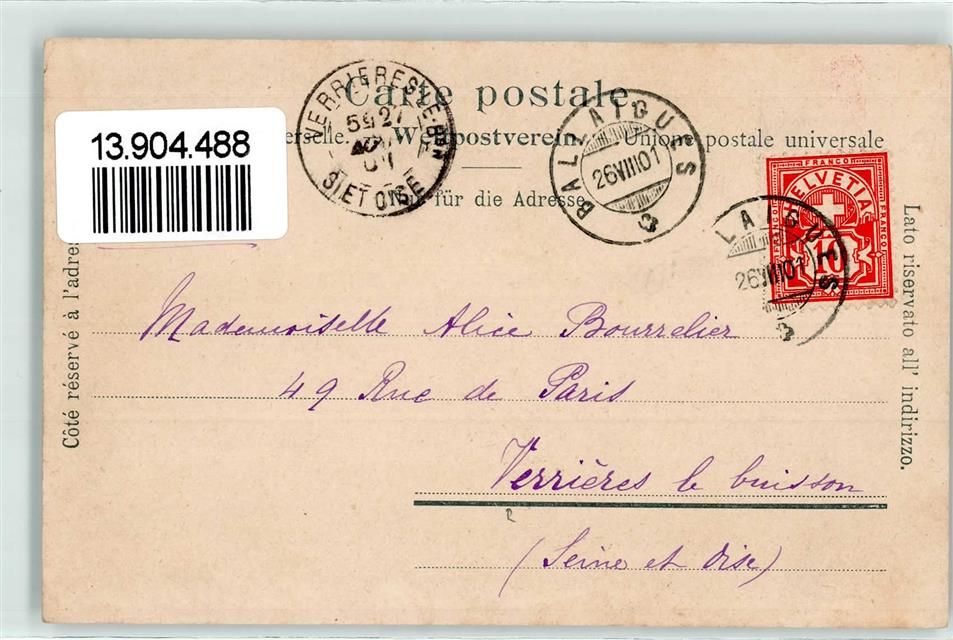 Carte postale
erselle. Weltpostverein. Unione postale universale
Nur für die Adresse
13.904.488
VERRIERES-LE-BON
5E 27
01
SEINE ET OISE
BALLAIGUES
26 VIII 01
FRANCO
HELVETIA
FRANCO
FRANCO
10
LAIGUES
26 VIII 01
Côté réservé à l'adres
Lato riservato all' indirizzo.
Mademoiselle Alice Bourrelier
49 Rue de Paris
Verrières le buisson
(Seine et Oise)